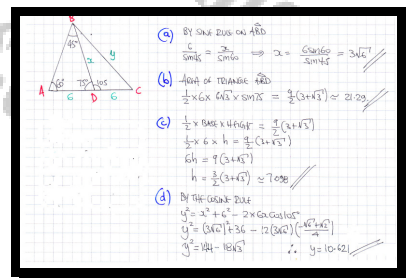 B
45°
x
y
A
60°
75°
105
C
6
D
6
(a) BY SINE RULE ON ABD
6/sin45 = x/sin60 ⟹ x = 6sin60/sin45 = 3√6
(b) AREA OF TRIANGLE ABD
1/2 × 6 × 3√6 × sin75 = 9/2(3+√3) ≈ 21.29
(c) 1/2 × BASE × HEIGHT = 9/2(3+√3)
1/2 × 6 × h = 9/2(3+√3)
6h = 9(3+√3)
h = 3/2(3+√3) ≈ 7.098
(d) BY THE COSINE RULE
y² = x² + 6² - 2×6x cos105°
y² = (3√6)² + 36 - 12(3√6)(-√6+√2/4)
y² = 144 - 18√3 ∴ y = 10.621